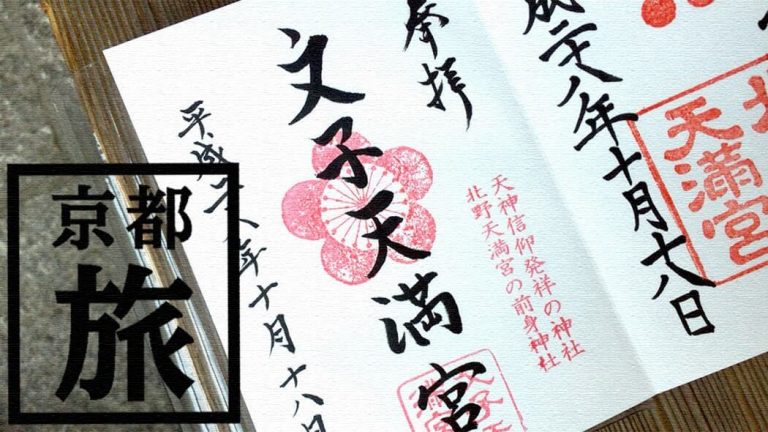 奉拝
文子天満宮
平成二八年十月十八日
天神信仰発祥の神社
北野天満宮の前身神社
成二八年十月十八日
天満宮
京都
旅